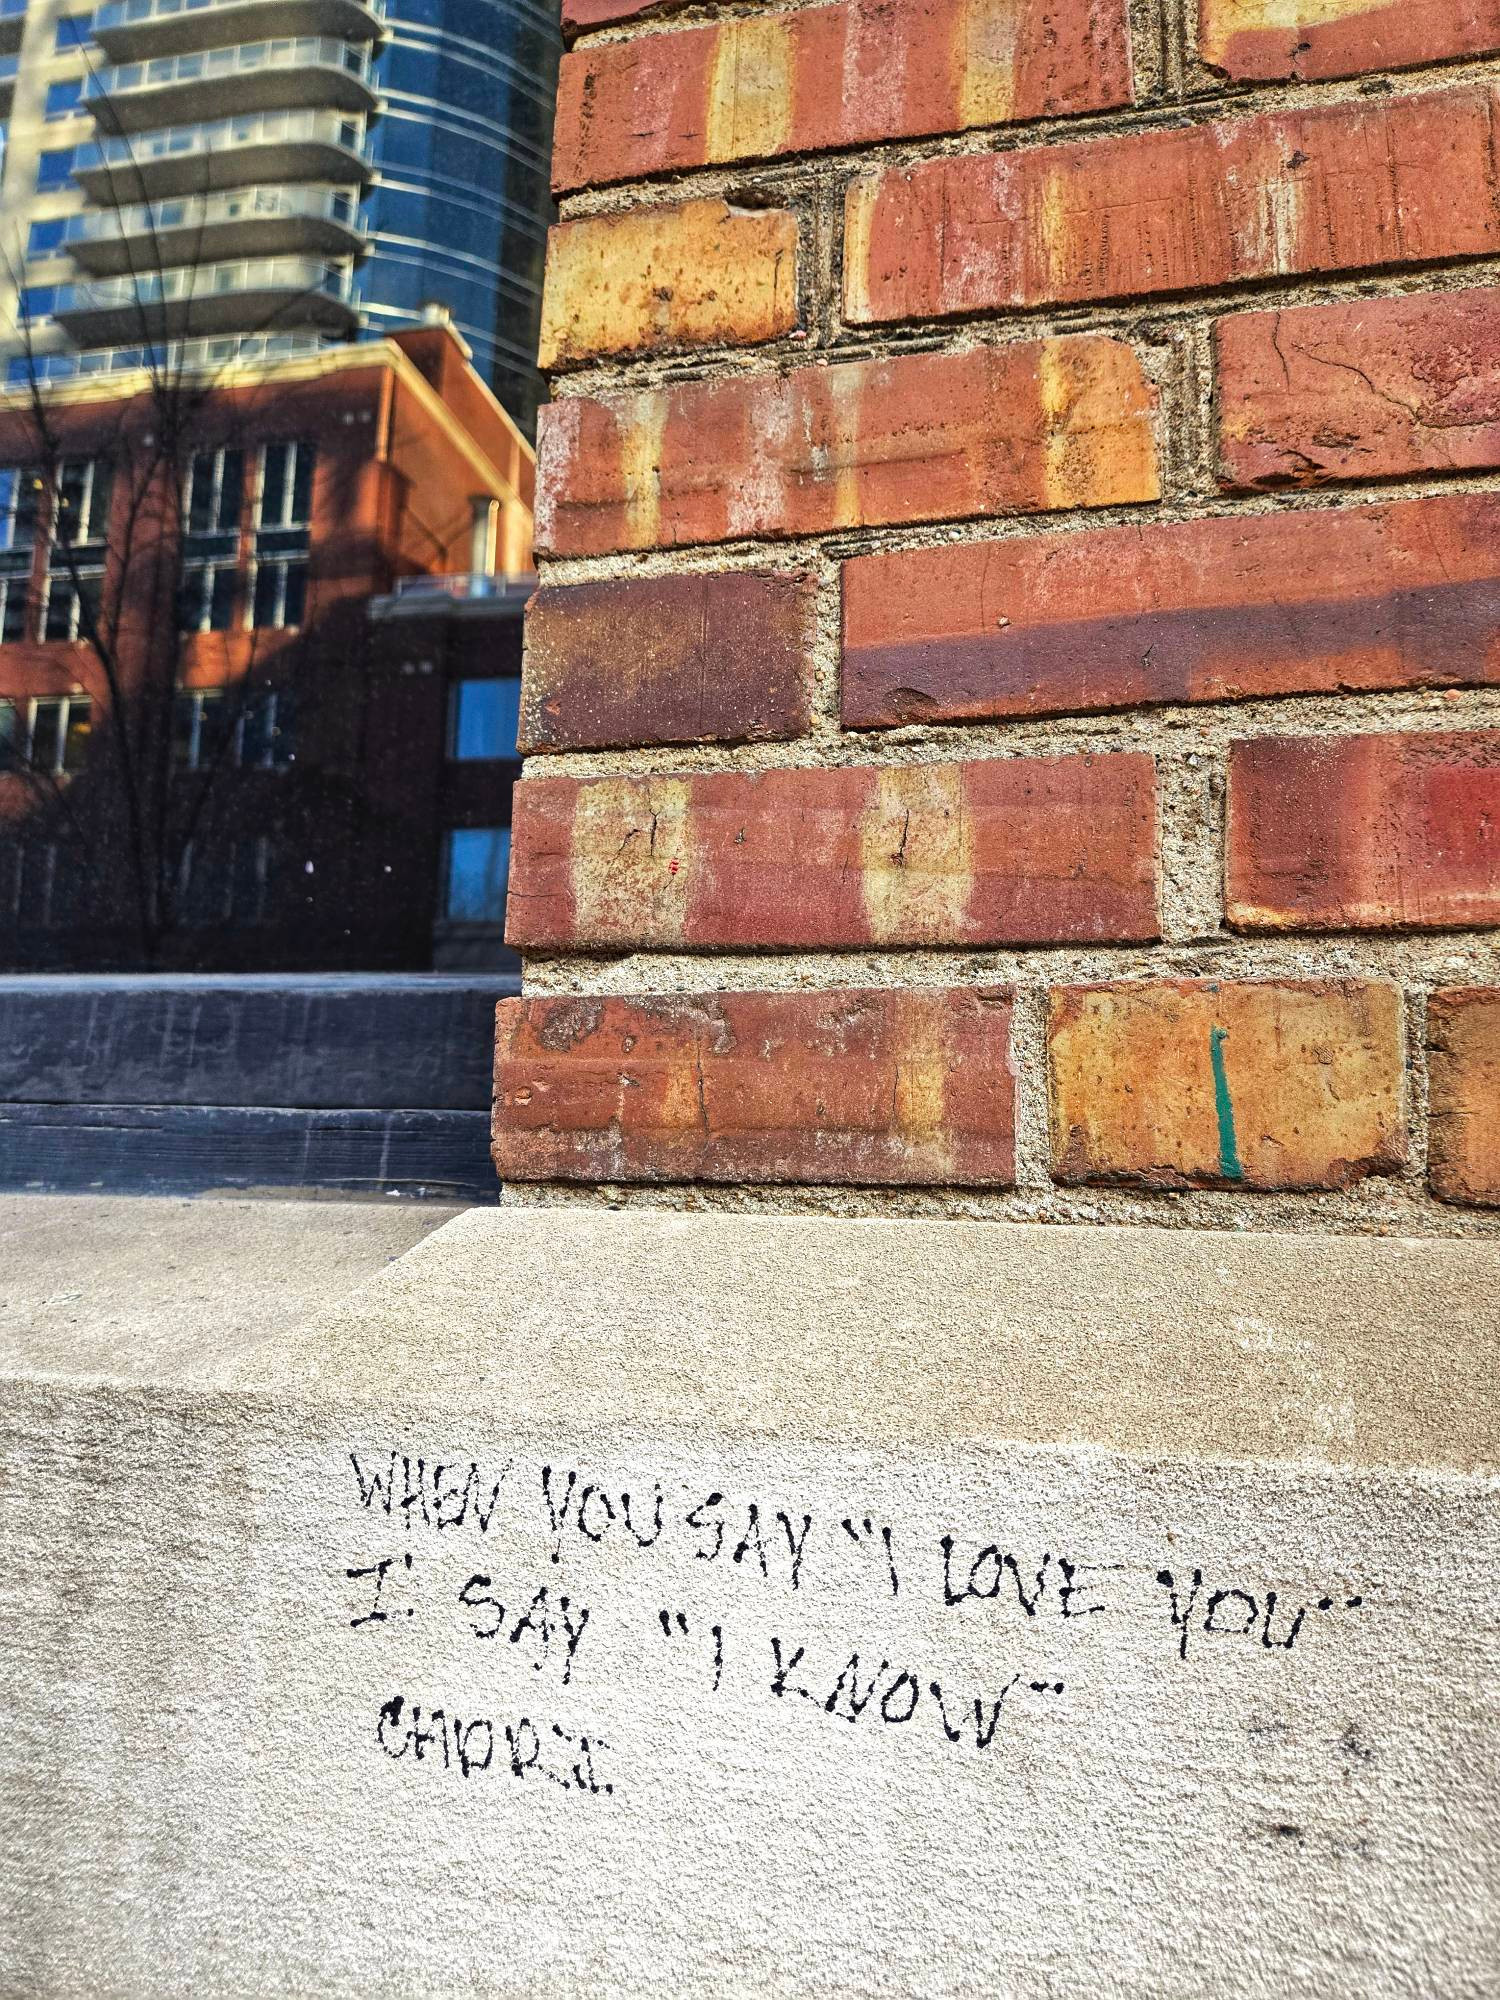 WHEN YOU SAY "I LOVE YOU"
I SAY "I KNOW"